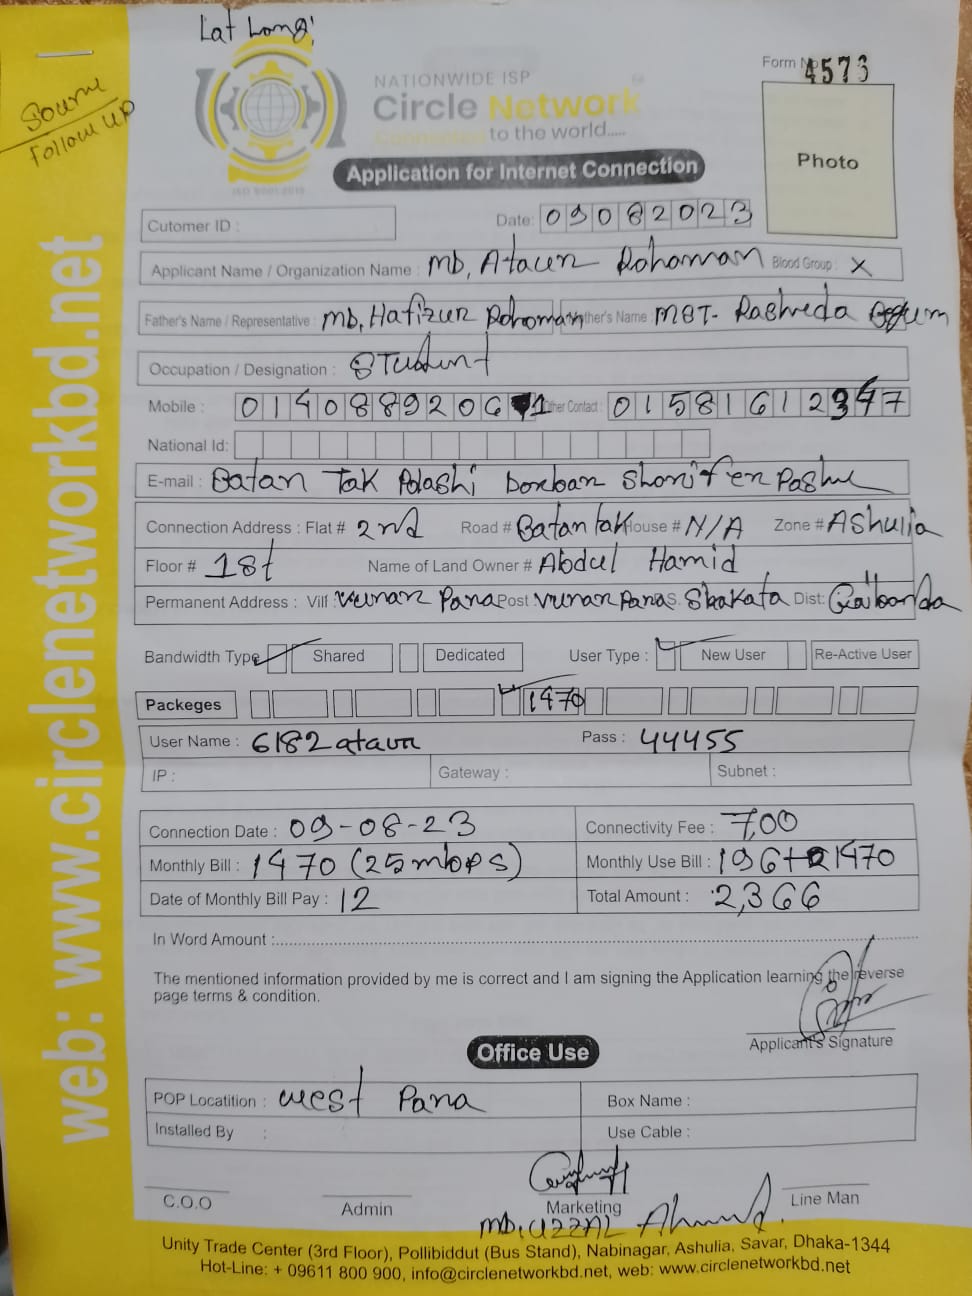 Lat Long:
Form No 4573
Sourse
Follow up
NATIONWIDE ISP
Circle Network
Connected to the world.....
ISO 9001:2015
Photo
Application for Internet Connection
Cutomer ID :
Date: 09082023
Applicant Name / Organization Name : Md, Ataur Rohoman Blood Group : X
Father's Name / Representative : Md, Hafizur Rohoman Mother's Name : MST- Rasheda Begum
Occupation / Designation : STudent
Mobile : 01408892061 Other Contact : 01581612347
National Id:
E-mail : Batan Tak Polashi Dorbar Shorif er Pashe
Connection Address : Flat # 2nd Road # Batan tak House # N/A Zone # Ashulia
Floor # 1st Name of Land Owner # Abdul Hamid
Permanent Address : Vill: Vunan Para Post Vunan Para S. Shakata Dist: Gaibanda
Bandwidth Type Shared Dedicated User Type : New User Re-Active User
Packeges 1470
User Name : 6182ataur Pass : 44455
IP : Gateway : Subnet :
Connection Date : 09-08-23 Connectivity Fee : 700
Monthly Bill : 1470 (25mbps) Monthly Use Bill : 196+1470
Date of Monthly Bill Pay : 12 Total Amount : 2,366
In Word Amount :
The mentioned information provided by me is correct and I am signing the Application learning the reverse
page terms & condition.
Applicant's Signature
Office Use
POP Locatition : west Para Box Name :
Installed By : Use Cable :
C.O.O Admin Marketing Line Man
Md. UZZAL Ahmed
web: www.circlenetworkbd.net
Unity Trade Center (3rd Floor), Pollibiddut (Bus Stand), Nabinagar, Ashulia, Savar, Dhaka-1344
Hot-Line: + 09611 800 900, info@circlenetworkbd.net, web: www.circlenetworkbd.net